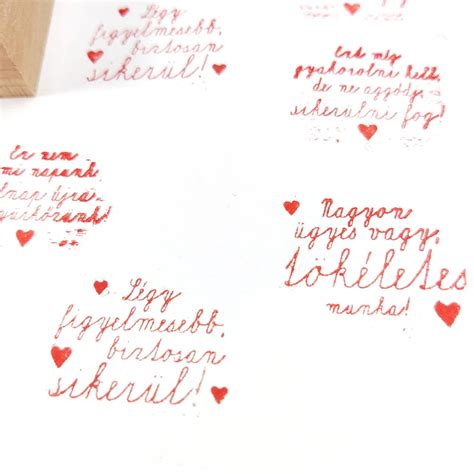 Légy
figyelmesebb,
biztosan
sikerül!
Ezt még
gyakorolni kell,
de ne aggódj,
sikerülni fog!
Ez nem
mi napunk,
újra
Nagyon
ügyes vagy,
tökéletes
munka!
Légy
figyelmesebb,
biztosan
sikerül!